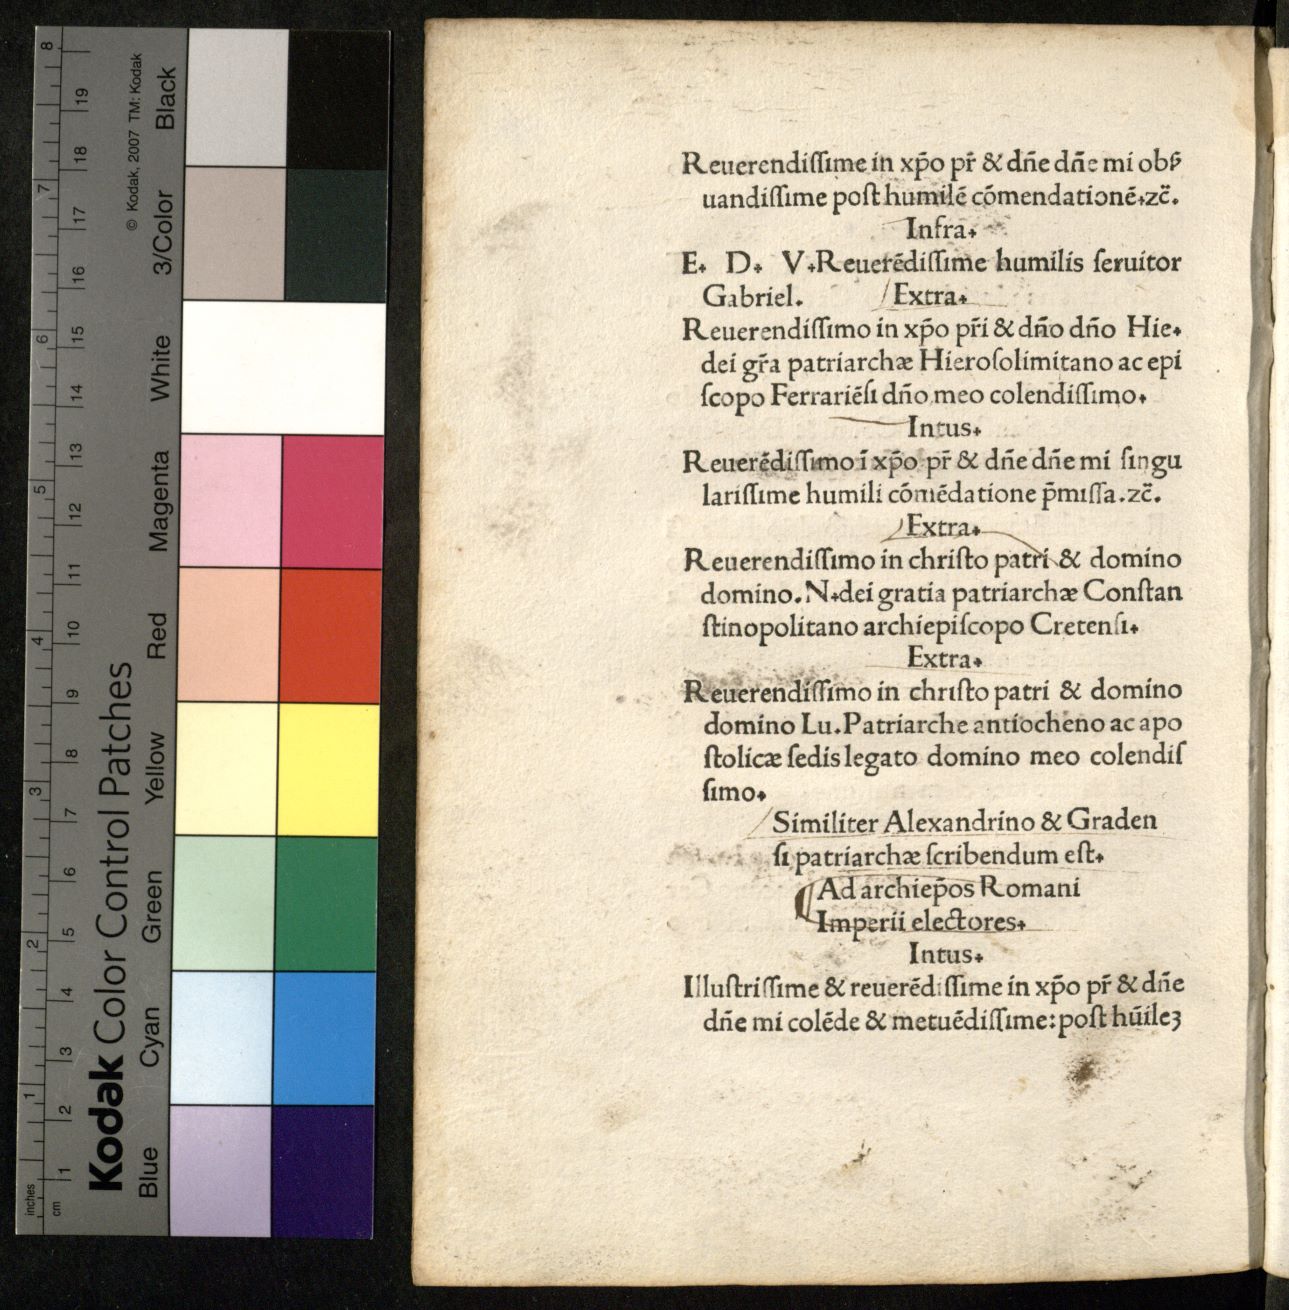 Reuerendiſſime in xp̄o pr̄ & dn̄e dn̄e mi obẜ
uandiſſime poſt humilē cōmendationē.zc̄.
Infra.
E. D. V.Reuerēdiſſime humilis ſeruitor
Gabriel. Extra.
Reuerendiſſimo in xp̄o pr̄i & dn̄o dn̄o Hie.
dei gr̄a patriarchæ Hieroſolimitano ac epi
ſcopo Ferrariēſi dn̄o meo colendiſſimo.
Intus.
Reuerēdiſſimo ī xp̄o pr̄ & dn̄e dn̄e mi ſingu
lariſſime humili cōmēdatione p̄miſſa.zc̄.
Extra.
Reuerendiſſimo in chriſto patri & domino
domino.N.dei gratia patriarchæ Conſtan
ſtinopolitano archiepiſcopo Cretenſi.
Extra.
Reuerendiſſimo in chriſto patri & domino
domino Lu.Patriarche antiocheno ac apo
ſtolicæ ſedis legato domino meo colendiſ
ſimo.
Similiter Alexandrino & Graden
ſi patriarchæ ſcribendum eſt.
¶Ad archiep̄os Romani
Imperii electores.
Intus.
Illuſtriſſime & reuerēdiſſime in xp̄o pr̄ & dn̄e
dn̄e mi colēde & metuēdiſſime:poſt hūileꝫ
Kodak Color Control Patches
© Kodak, 2007 TM: Kodak
Blue Cyan Green Yellow Red Magenta White 3/Color Black
inches 1 2 3 4 5 6 7 8
cm 1 2 3 4 5 6 7 8 9 10 11 12 13 14 15 16 17 18 19